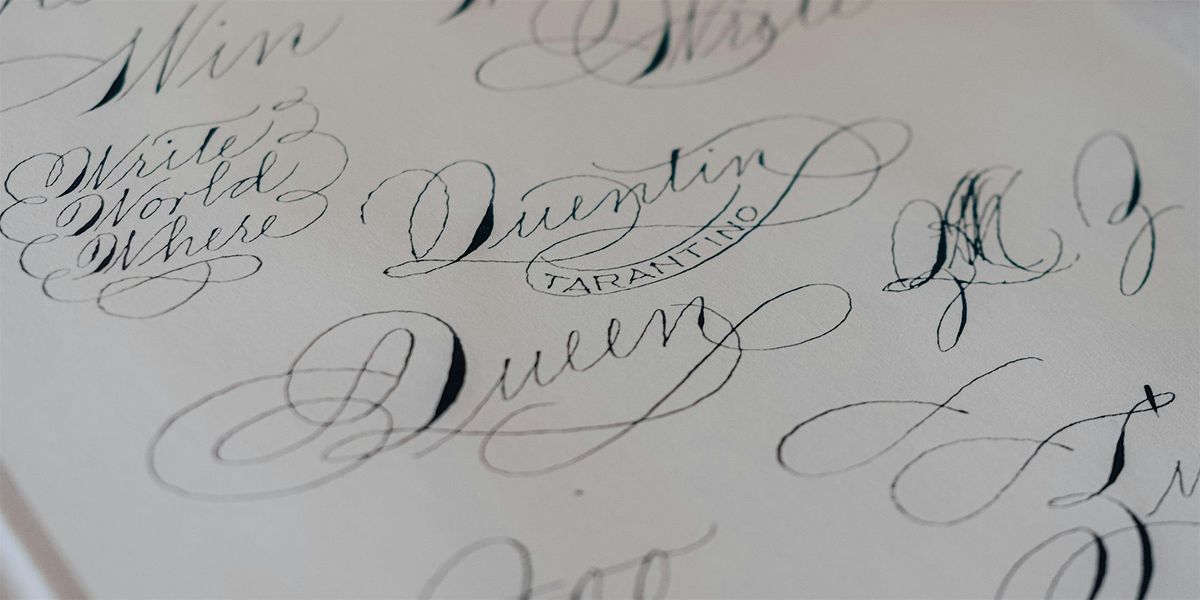 Win
Write
Write
World
Where
Quentin
TARANTINO
Queen